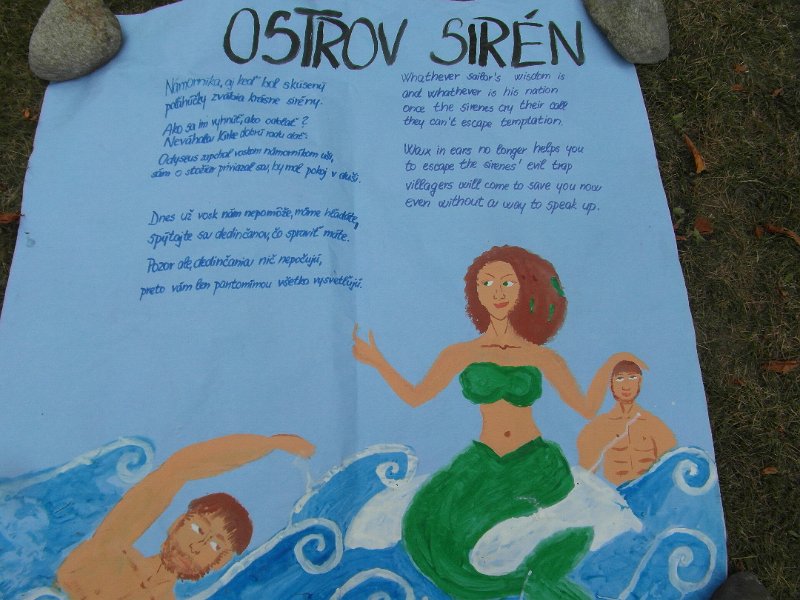 OSTROV SIRÉN
Námorníka, aj keď bol skúsený
poľahúčky zvábia krásne sirény.
Ako sa im vyhnúť, ako odolať?
Neváhala Kirké dobrú radu dať:
Odyseus zapchal voskom námorníkom uši,
sám o stožiar priviazal sa, by mal pokoj v duši.
Dnes už vosk nám nepomôže, máme hľadáte,
spýtajte sa dedinčanov, čo spraviť máte.
Pozor ale, dedinčania nič nepočujú,
preto vám len pantomímou všetko vysvetľujú.
Whathever sailor's wisdom is
and whathever is his nation
once the sirenes cry their call
they can't escape temptation.
Wax in ears no longer helps you
to escape the sirenes' evil trap
villagers will come to save you now
even without a way to speak up.